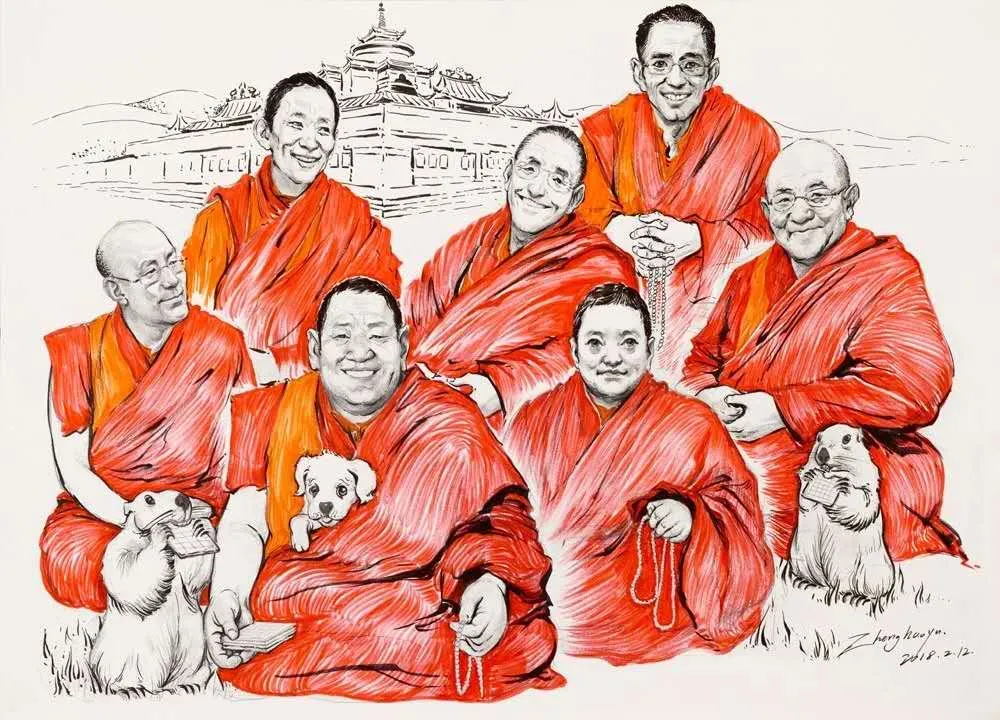 Zhenghaoyu.
2018.2.12.